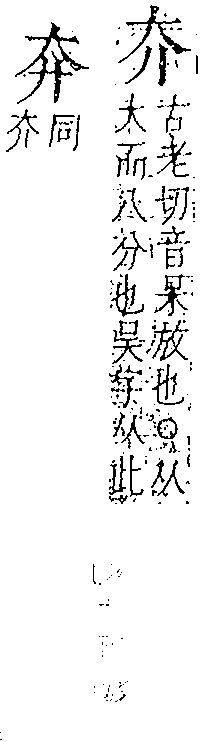 夰
古老切音杲放也○从
大而八分也吴䓁从此
同
夰